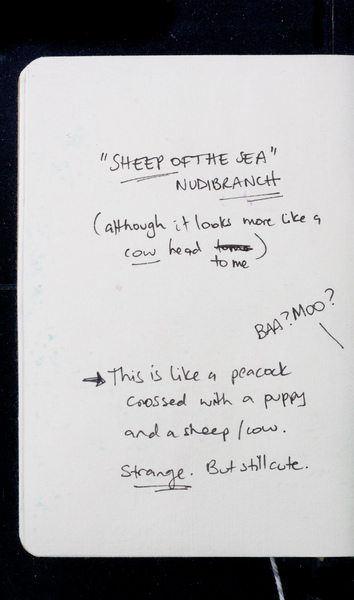 "SHEEP OF THE SEA"
NUDIBRANCH
(although it looks more like a
cow head to me)
BAA? MOO?
→ This is like a peacock
crossed with a puppy
and a sheep/cow.
Strange. But still cute.